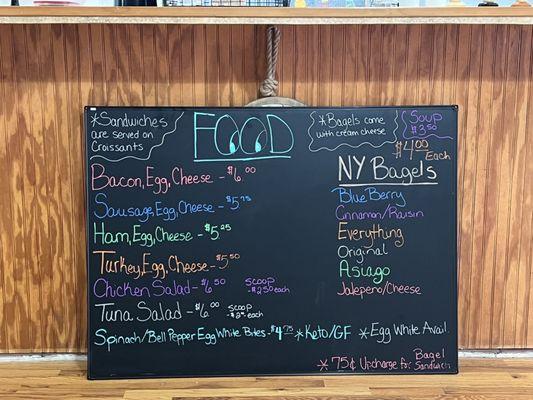 *Sandwiches
are served on
Croissants
FOOD
*Bagels come
with cream cheese
Soup
$3.50
$4.00 Each
NY Bagels
Bacon, Egg, Cheese - $6.00
Sausage, Egg, Cheese - $5.75
Ham, Egg, Cheese - $5.25
Turkey, Egg, Cheese - $5.50
Chicken Salad - $6.50 Scoop
- $2.50 each
Tuna Salad - $6.00 Scoop
each
Spinach/Bell Pepper Egg White Bites - $4.75 *Keto/GF *Egg White Avail.
BlueBerry
Cinnamon/Raisin
Everything
Original
Asiago
Jalepeño/Cheese
*75¢ Upcharge for Bagel
Sandwich